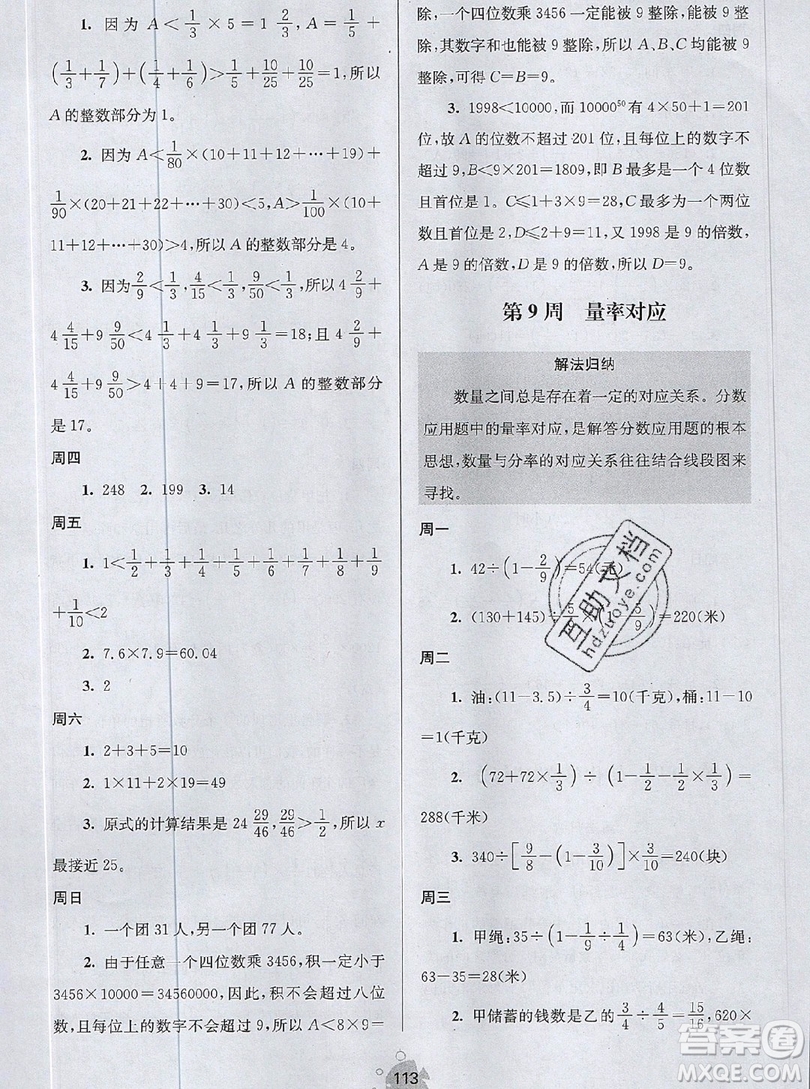 1. 因为 A<1/3×5=1 2/3, A=1/5+
(1/3+1/7)+(1/4+1/6)>1/5+10/25+10/25=1, 所以
A 的整数部分为 1。
2. 因为 A<1/80×(10+11+12+…+19)+
1/90×(20+21+22+…+30)<5, A>1/100×(10+
11+12+…+30)>4, 所以 A 的整数部分是 4。
3. 因为 2/9<1/3, 4/15<1/3, 9/50<1/3, 所以 4 2/9+
4 4/15+9 9/50<4 1/3+4 1/3+9 1/3=18; 且 4 2/9+
4 4/15+9 9/50>4+4+9=17, 所以 A 的整数部分
是 17。
周四
1. 248 2. 199 3. 14
周五
1. 1<1/3+1/4+1/5+1/6+1/7+1/8+1/9
+1/10<2
2. 7.6×7.9=60.04
3. 2
周六
1. 2+3+5=10
2. 1×11+2×22=77
3. 原式的计算结果是 24 29/46, 29/46>1/2, 所以 x
最接近 25。
周日
1. 一个团 31 人, 另一个团 77 人。
2. 由于任意一个四位数乘 3456, 积一定小于
3456×10000=34560000, 因此, 积不会超过八位
数, 且每位上的数字不会超过 9, 所以 A<8×9=
除, 一个四位数乘 3456 一定能被 9 整除, 能被 9 整
除, 其数字和也能被 9 整除, 所以 A、B、C 均能被 9
整除, 可得 C=B=9。
3. 1998<10000, 而 10000⁵⁰ 有 4×50+1=201
位, 故 A 的位数不超过 201 位, 且每位上的数字不
超过 9, B≤9×201=1809, 即 B 最多是一个 4 位数
且首位是 1。C≤1+3×9=28, C 最多为一个两位
数且首位是 2, D≤2+9=11, 又 1998 是 9 的倍数,
A 是 9 的倍数, D 是 9 的倍数, 所以 D=9。
第 9 周 量率对应
解法归纳
数量之间总是存在着一定的对应关系。分数
应用题中的量率对应, 是解答分数应用题的根本
思想, 数量与分率的对应关系往往结合线段图来
寻找。
周一
1. 42÷(1-2/9)=54(元)
2. (130+145)÷(5/9)=220(米)
周二
1. 油: (11-3.5)÷3/4=10(千克), 桶: 11-10
=1(千克)
2. (72+72×1/3)÷(1-1/2-1/2×1/3)=
288(千米)
3. 340÷[9/8-(1-3/10)×3/10]=240(块)
周三
1. 甲绳: 35÷(1-1/9÷1/4)=63(米), 乙绳:
63-35=28(米)
2. 甲储蓄的钱数是乙的 3/4÷4/5=15/16, 620×
113
互助文档
hdzuoye.com
答案圈
MXQE.COM